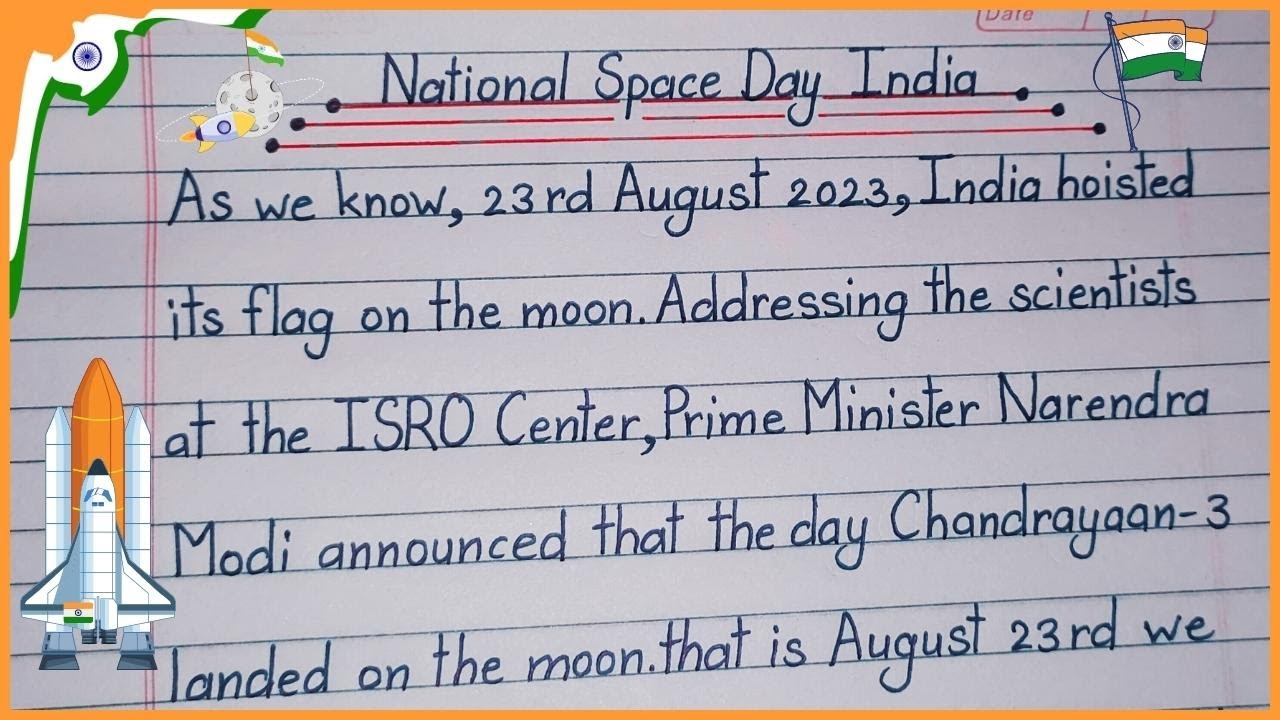 Date
National Space Day India
As we know, 23rd August 2023, India hoisted
its flag on the moon. Addressing the scientists
at the ISRO Center, Prime Minister Narendra
Modi announced that the day Chandrayaan-3
landed on the moon. that is August 23rd we